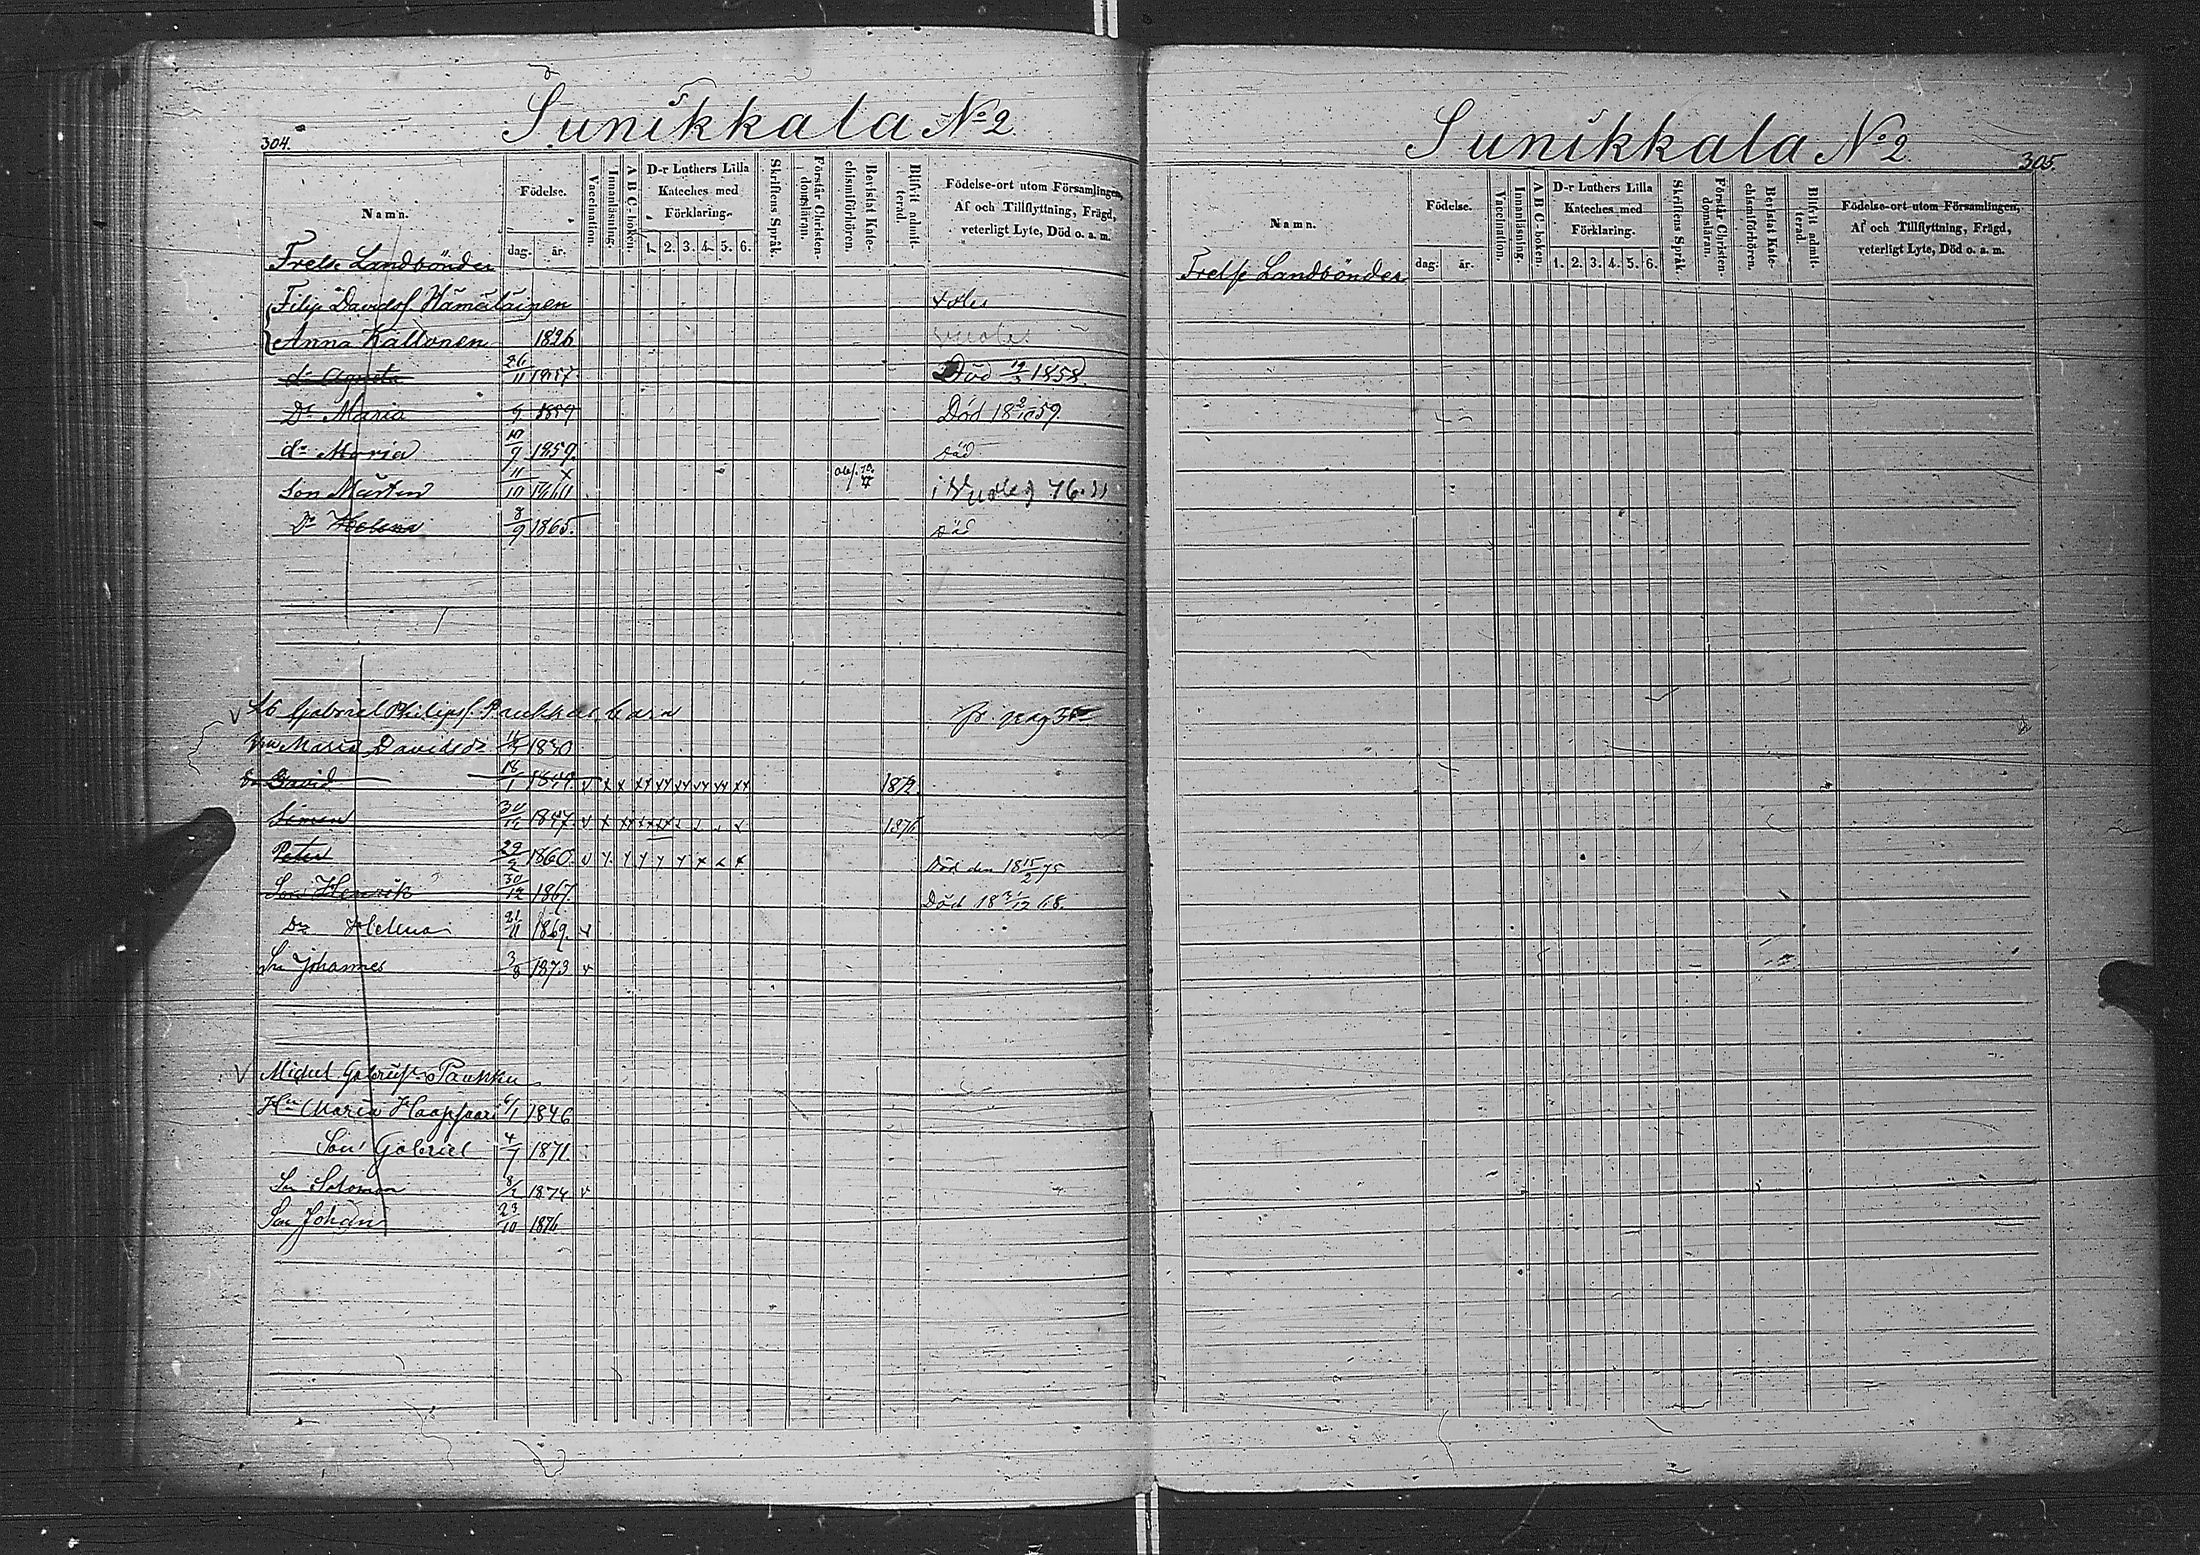 304.
Sunikkala No 2
Namn.
Födelse.
dag. år.
Vaccination.
Innanläsning.
A B C-boken.
D-r Luthers Lilla Kateches med Förklaring.
1. 2. 3. 4. 5. 6.
Skriftens Språk.
Förstår Christendomsläran.
Bevistat Katechismiförhören.
Blifvit admitterad.
Födelse-ort utom Församlingen,
Af och Tillflyttning, Frägd,
veterligt Lyte, Död o. a. m.
Frelse Landbönder
Filip Davidsf Hämäläinen
Anna Kallonen 1826
dr Agneta 26/11 1857. Död 19/3 1858.
Dr Maria 9 1859 Död 18 9/10 59.
dr Maria 10/9 1859. Död
Son Mårten 11/10 1860
Dr Helena 8/9 1865. Död
Gabriel Philipsf. fr. pag
Maria Davidsdr 1830
Sn David 18/1 1849. v x x xx xx xx xx xx xx 1872.
Simon 30/12 1857. v x
Peter 29/2 1860. v Död den 18 15/2 75
Son Henrik 30/12 1867. Död 18 31/12 68.
Dr Helena 21/11 1869. v
Sn Johannes 3/8 1873 v
V Michel
Hu Maria Haapsaari 6/1 1846
Son Gabriel 4/7 1871.
Sn Salomon 8/2 1874 v
Son Johan 23/10 1876
Sunikkala No 2
305.
Namn.
Födelse.
dag. år.
Vaccination.
Innanläsning.
A B C-boken.
D-r Luthers Lilla Kateches med Förklaring.
1. 2. 3. 4. 5. 6.
Skriftens Språk.
Förstår Christendomsläran.
Bevistat Katechismiförhören.
Blifvit admitterad.
Födelse-ort utom Församlingen,
Af och Tillflyttning, Frägd,
veterligt Lyte, Död o. a. m.
Frelse Landbönder